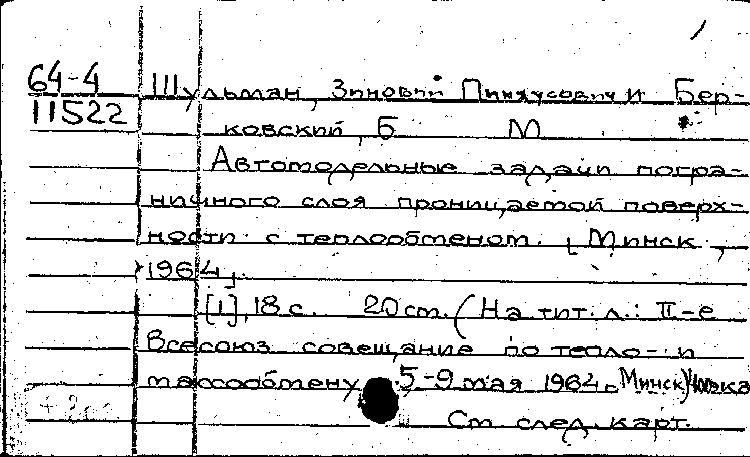 64-4
11522
Шульман, Зиновий Пинхусович и Бер-
ковский, Б М
Автомодельные задачи погра-
ничного слоя проницаемой поверх-
ности с теплообменом. [Минск,
1964].
[1], 18 с. 20 см. (На тит. л.: II-е
Всесоюз. совещание по тепло- и
массообмену 5-9 мая 1964 г. Минск)
См. след. карт.